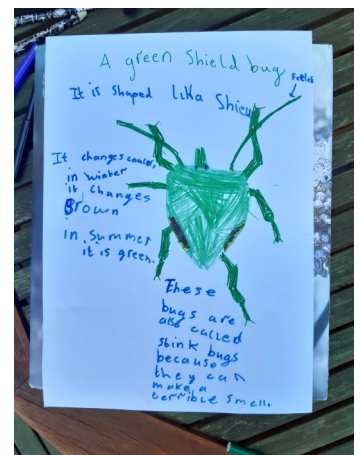 A green Shield bug
It is shaped Like Shield
It changes colour,
in winter
it changes
Brown
in summer
it is green.
These
bugs are
also called
stink bugs
because
they can
make a
terrible smell.